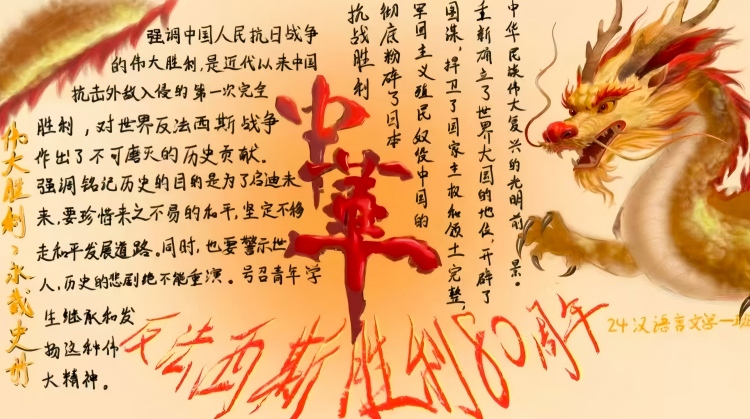 强调中国人民抗日战争
的伟大胜利,是近代以来中国
抗击外敌入侵的第一次完全
胜利，对世界反法西斯战争
作出了不可磨灭的历史贡献。
强调铭记历史的目的是为了启迪未
来,要珍惜来之不易的和平,坚定不移
走和平发展道路。同时,也要警示世
人,历史的悲剧绝不能重演。号召青年学
生继承和发
扬这种伟
大精神。
伟大胜利、永载史册
中華
抗战胜利
彻底粉碎了日本
军国主义殖民奴役中国的
图谋,捍卫了国家主权和领土完整,
重新确立了世界大国的地位,开辟了
中华民族伟大复兴的光明前景。
反法西斯胜利80周年
24汉语言文学一班